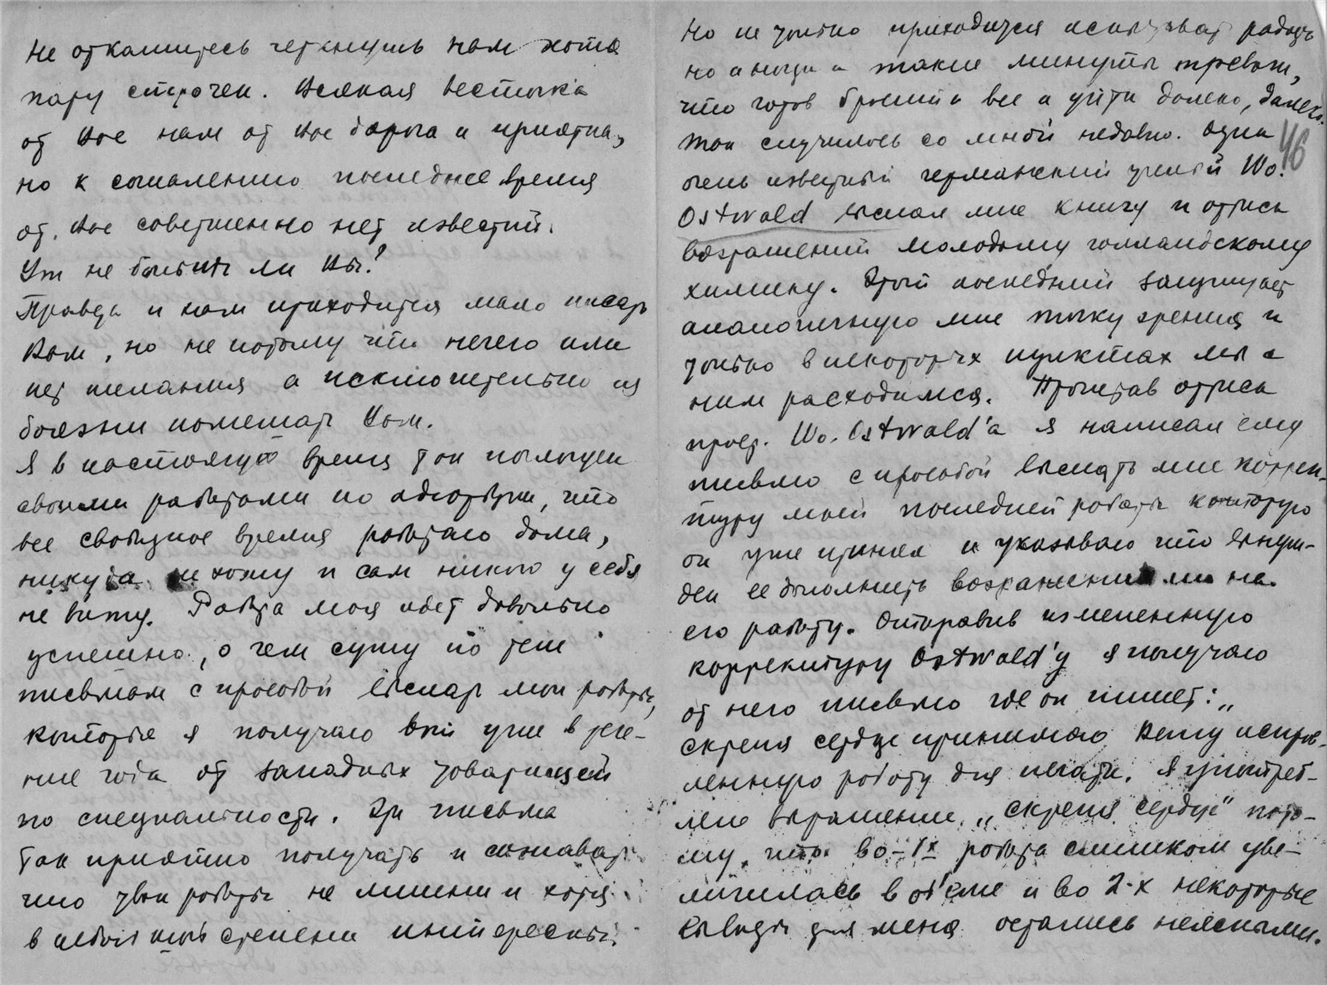 Не откажитесь черкнуть нам хотя
пару строчек. Всякая весточка
от Вас нам от Вас дорога и приятна,
но к сожалению последнее время
от Вас совершенно нет известий.
Уж не больны ли Вы?
Правда и нам приходится мало писать
Вам, но не потому что нечего или
нет желания а исключительно из
боязни помешать Вам.
Я в настоящее время так поглощен
своими работами по адсорбции, что
все свободное время работаю дома,
никуда не хожу и сам никого у себя
не вижу. Работа моя идет довольно
успешно, о чем сужу по тем
письмам с просьбой выслать мои работы,
которые я получаю вот уже в тече-
ние года от западных товарищей
по специальности. Эти письма
так приятно получать и сознавать
что твои работы не лишни и хотя
в небольшой степени интересны.
Но не только приходится испытывать радость
но иногда и такие минуты тревоги,
что готов бросить все и уйти далеко, далеко.
Так случилось со мной недавно. Один
46
очень известный германский ученый Wo.
Ostwald выслал мне книгу и оттиск
возражений молодому голландскому
химику. Этот последний защищает
аналогичную мне точку зрения и
только в некоторых пунктах мы с
ним расходимся. Прочитав оттиск
проф. Wo. Ostwald'а я написал ему
письмо с просьбой выслать мне коррек-
туру моей последней работы которую
он уже принял и указываю что вынуж-
ден ее дополнить возражениями на
его работу. Отправив измененную
корректуру Ostwald'у я получаю
от него письмо где он пишет: „
скрепя сердце принимаю Вашу исправ-
ленную работу для печати. Я употреб-
ляю выражение „скрепя сердце" пото-
му, что во-1х работа слишком уве-
личилась в об'еме и во 2-х некоторые
выводы для меня остались неясными.